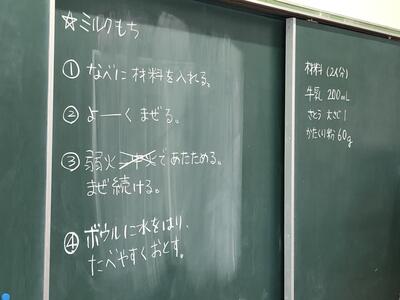 ☆ミルクもち
① なべに材料を入れる。
② よーくまぜる。
③ 弱火～中火であたためる。
まぜ続ける。
④ ボウルに水をはり、
たべやすくおとす。
材料(2人分)
牛乳 200mL
さとう 大さじ1
かたくり粉 60g